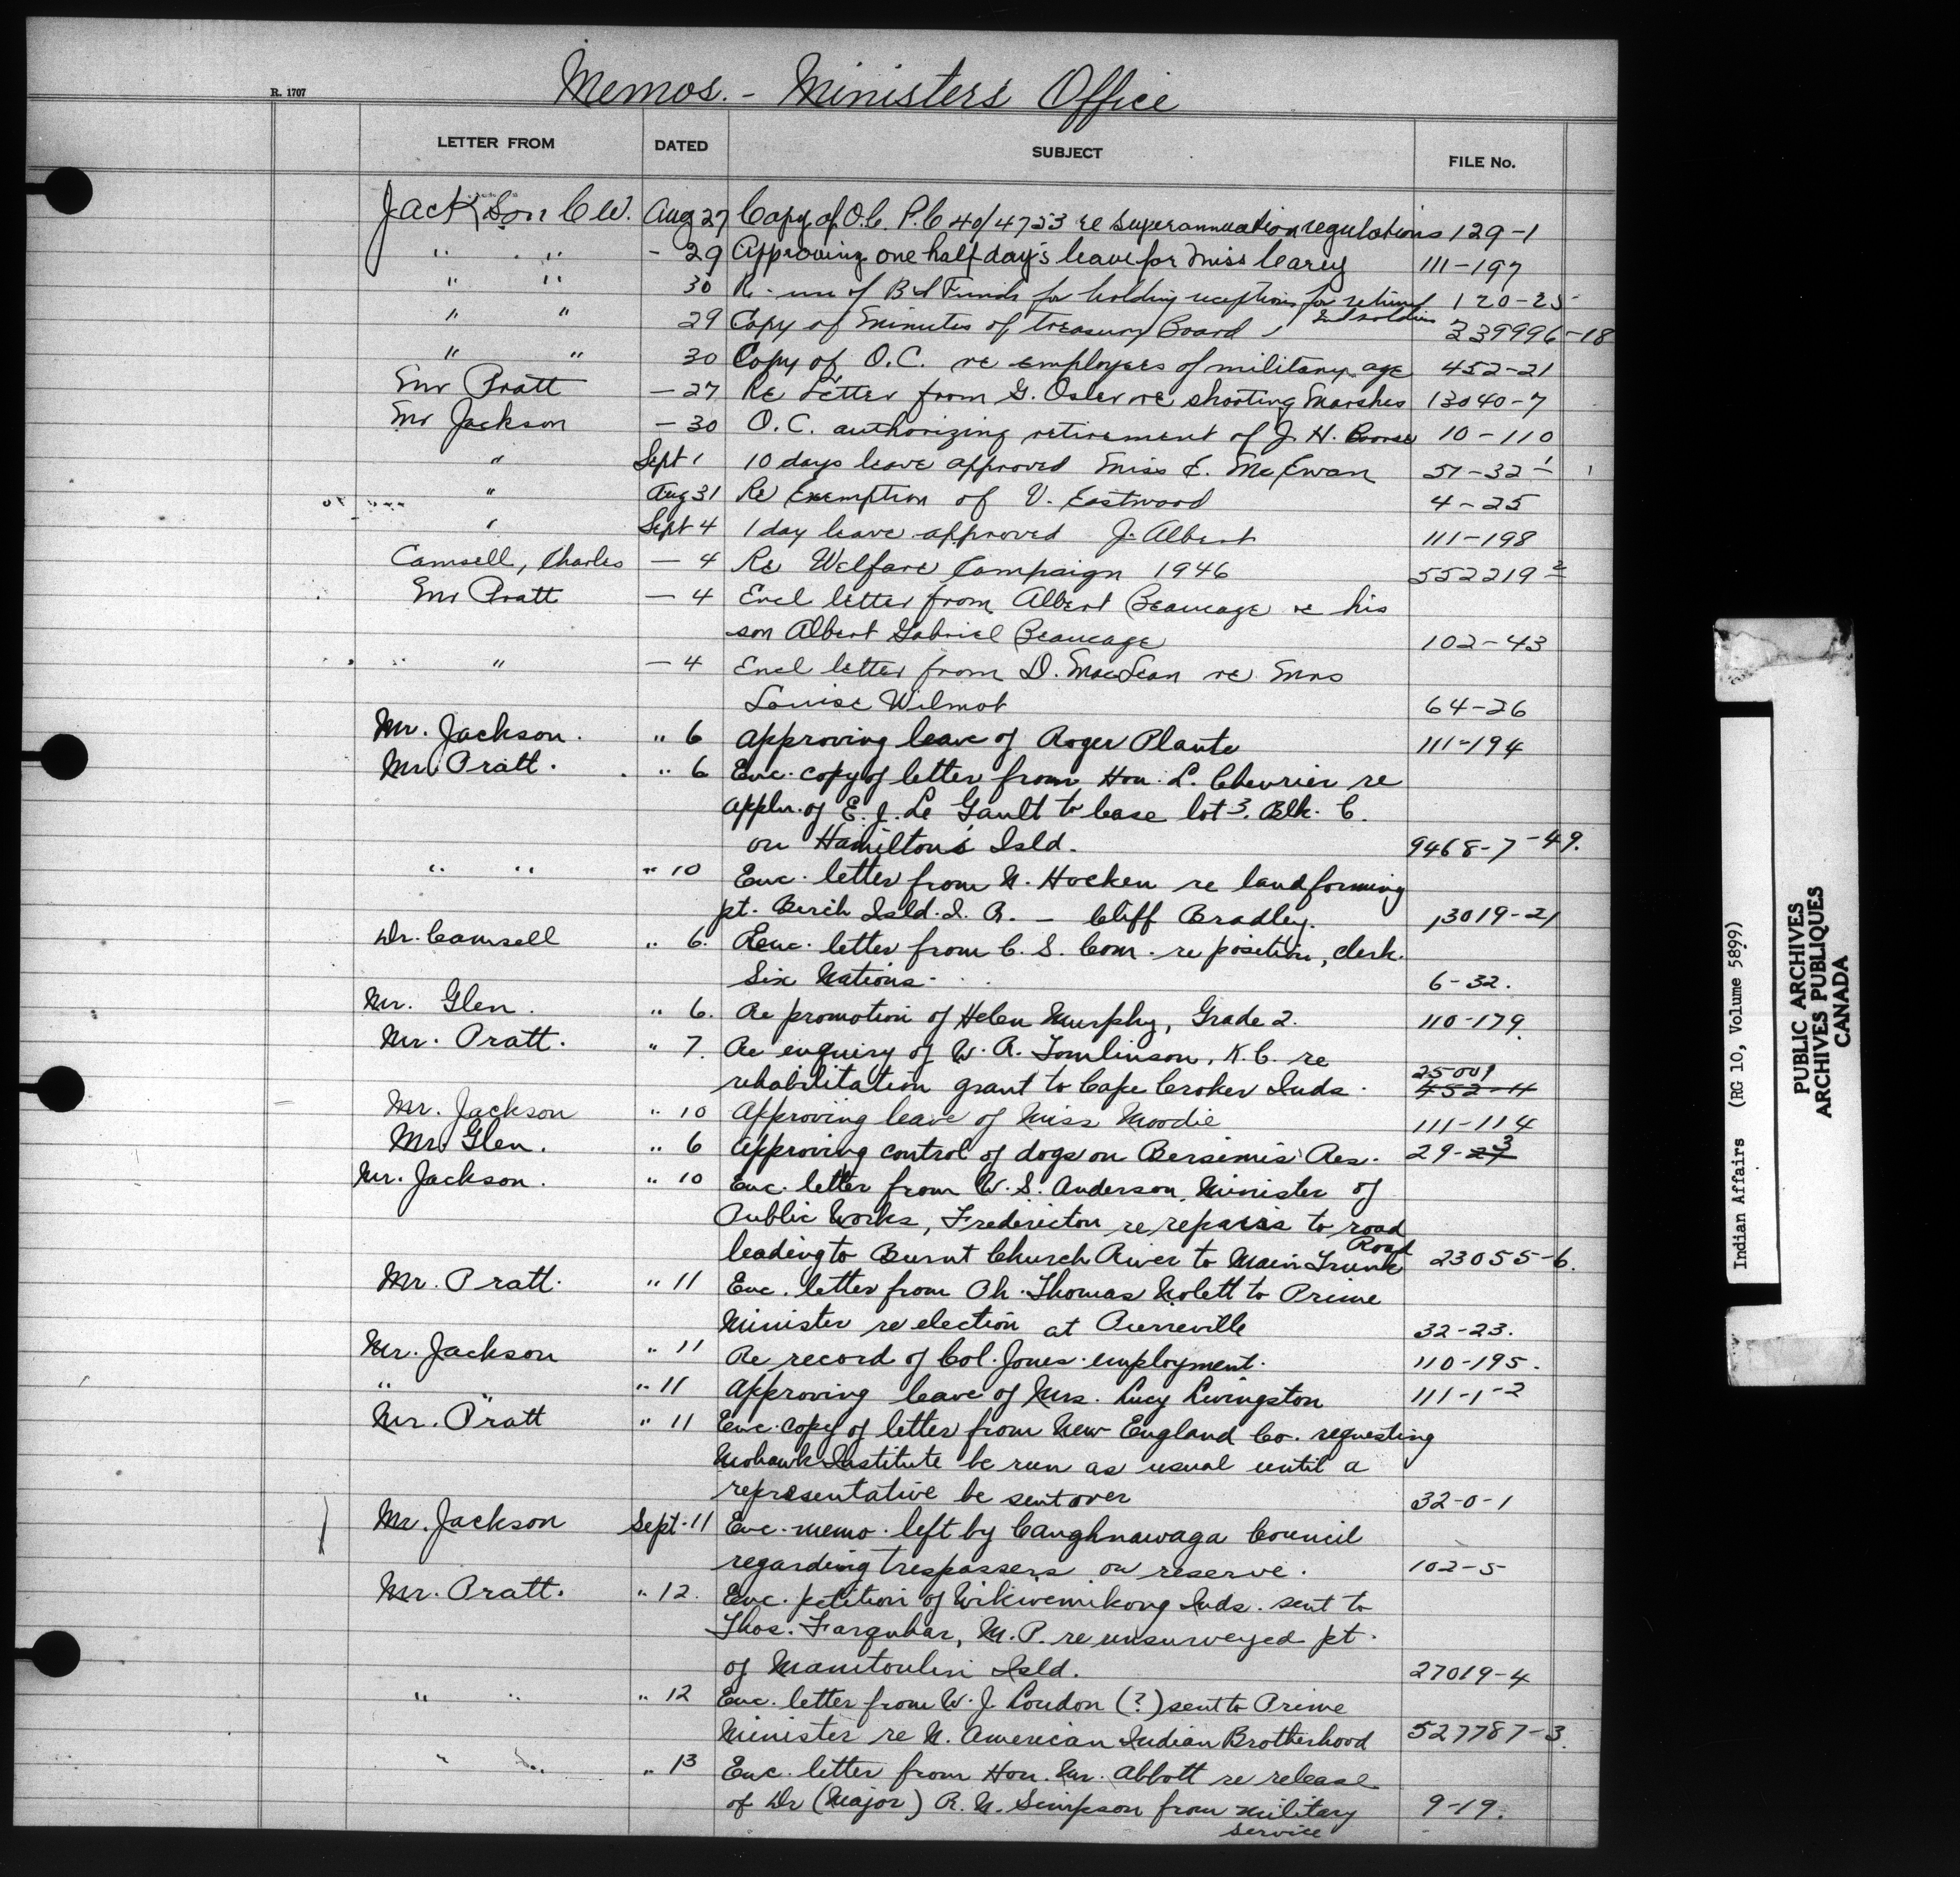 Memos. - Ministers Office
R. 1707
LETTER FROM DATED SUBJECT FILE No.
Jackson C W. Aug 27 Copy of O.C. P.C 40/4753 re superannuation regulations 129-1
" " - 29 Approving one half day's leave for Miss Carey 111-197
" " 30 Re - use of Funds for holding receptions for 120-25
" " 29 Copy of Minutes of Treasury Board 339996-18
" " 30 Copy of O.C. re employees of military age 452-21
Mr Pratt - 27 Re Letter from G. Osler re shooting Marshes 13040-7
Mr Jackson - 30 O.C. authorizing retirement of J. H. 10-110
" Sept 1 10 days leave approved Miss E. McEwan 51-32
" Aug 31 Re Exemption of V. Eastwood 4-25
" Sept 4 1 day leave approved J. Albert 111-198
Camsell, Charles - 4 Re Welfare Campaign 1946 552219 2
Mr Pratt - 4 Encl letter from Albert Beaucage re his
son Albert Gabriel Beaucage 102-43
" - 4 Encl letter from D. MacLean re Mrs
Louise Wilmot 64-26
Mr. Jackson. " 6 Approving leave of Roger Plante 111-194
Mr. Pratt. " 6 Enc. copy of letter from Hon. L. Chevrier re
appln. of E. J. Le Gault to lease lot 3, Blk. C.
on Hamilton's Isld. 9468-7-49.
" " " 10 Enc. letter from N. Hocken re land forming
pt. Berch Isld. I. R. - Cliff Bradley. 13019-21
Dr. Camsell " 6. Enc. letter from C. S. Com. re position, clerk.
Six Nations. 6-32.
Mr. Glen. " 6. Re promotion of Helen Murphy, Grade 2. 110-179.
Mr. Pratt. " 7. Re enquiry of W. R. Tomlinson, K.C. re
rehabilitation grant to Cape Croker Inds. 25009 452-11
Mr. Jackson " 10 Approving leave of Miss Moodie 111-114
Mr. Glen. " 6 Approving control of dogs on Bersimis Res. 29-3
Mr. Jackson. " 10 Enc. letter from W. S. Anderson, Minister of
Public Works, Fredericton re repairs to road
leading to Burnt Church River to Main Trunk Road 23055-6.
Mr. Pratt. " 11 Enc. letter from Ch. Thomas Nolett to Prime
Minister re election at Pierreville 32-23.
Mr. Jackson " 11 Re record of Col. Jones employment. 110-195.
" " " 11 Approving leave of Mrs. Lucy Livingston 111-1-2
Mr. Pratt " 11 Enc. copy of letter from New England Co. requesting
Mohawk Institute be run as usual until a
representative be sent over 32-0-1
Mr. Jackson Sept. 11 Enc. memo. left by Caughnawaga Council
regarding trespassers on reserve. 102-5
Mr. Pratt. " 12. Enc. petition of Wikwemikong Inds. sent to
Thos. Farquhar, M.P. re unsurveyed pt.
of Manitoulin Isld. 27019-4
" " " 12 Enc. letter from W. J. Loudon (?) sent to Prime
Minister re N. American Indian Brotherhood 527787-3.
" " " 13 Enc. letter from Hon. Mr. Abbott re release
of Dr (Major) R. N. Simpson from military 9-19.
service
Indian Affairs (RG 10, Volume 5899)
PUBLIC ARCHIVES
ARCHIVES PUBLIQUES
CANADA